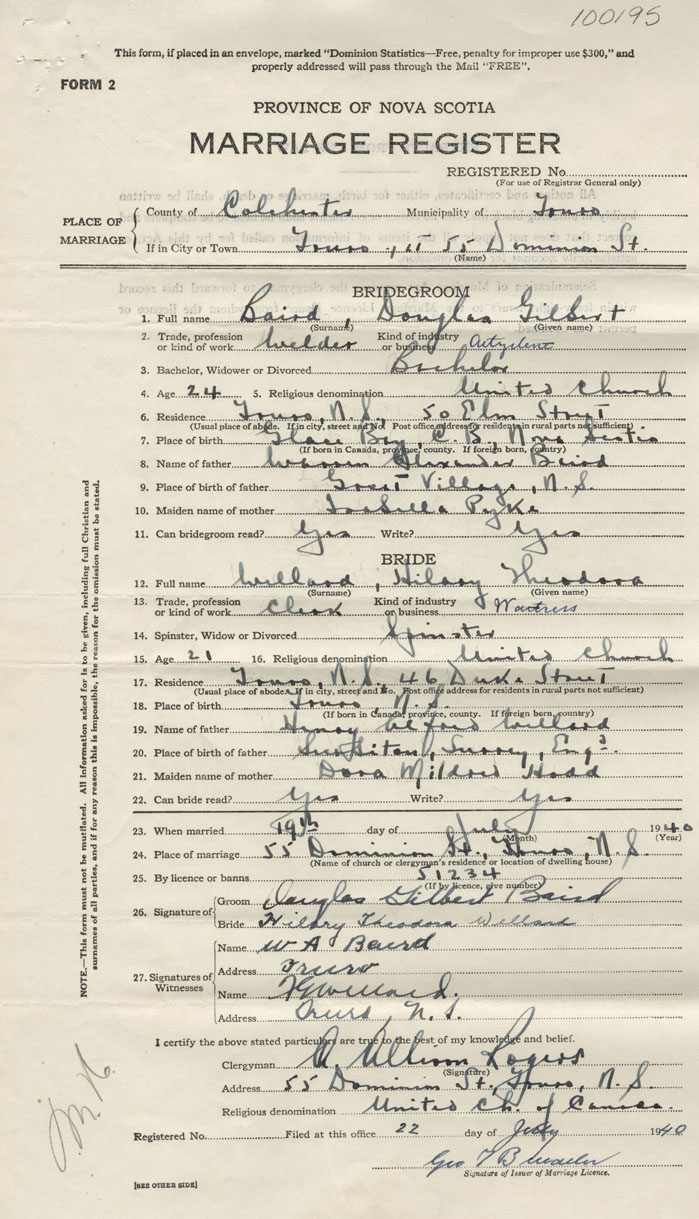 100195
This form, if placed in an envelope, marked "Dominion Statistics—Free, penalty for improper use $300," and
properly addressed will pass through the Mail "FREE".
FORM 2
PROVINCE OF NOVA SCOTIA
MARRIAGE REGISTER
REGISTERED No.
(For use of Registrar General only)
PLACE OF MARRIAGE
County of Colchester Municipality of Truro
If in City or Town Truro, 55 Dominion St.
(Name)
BRIDEGROOM
1. Full name Baird, Douglas Gilbert
(Surname) (Given name)
2. Trade, profession or kind of work Welder Kind of industry or business
3. Bachelor, Widower or Divorced Bachelor
4. Age 24 5. Religious denomination United Church
6. Residence Truro, N.S., 50 Elm Street
(Usual place of abode. If in city, street and No. Post office address for residents in rural parts not sufficient)
7. Place of birth Glace Bay, C.B., Nova Scotia
(If born in Canada, province, county. If foreign born, country)
8. Name of father Warren Alexander Baird
9. Place of birth of father Great Village, N.S.
10. Maiden name of mother Isabella Pyke
11. Can bridegroom read? Yes Write? Yes
BRIDE
12. Full name Willard, Hilary Theodora
(Surname) (Given name)
13. Trade, profession or kind of work Clerk Kind of industry or business Waitress
14. Spinster, Widow or Divorced Spinster
15. Age 21 16. Religious denomination United Church
17. Residence Truro, N.S., 46 Duke Street
(Usual place of abode. If in city, street and No. Post office address for residents in rural parts not sufficient)
18. Place of birth Truro, N.S.
(If born in Canada, province, county. If foreign born, country)
19. Name of father Henry Alford Willard
20. Place of birth of father Surrey, Engd.
21. Maiden name of mother Dora Mildred Hodd
22. Can bride read? Yes Write? Yes
23. When married 19th day of July 1940
(Month) (Year)
24. Place of marriage 55 Dominion St., Truro, N.S.
(Name of church or clergyman's residence or location of dwelling house)
25. By licence or banns 51234
(If by licence, give number)
26. Signature of
Groom Douglas Gilbert Baird
Bride Hilary Theodora Willard
27. Signatures of Witnesses
Name W A Baird
Address Truro
Name Willard.
Address Truro, N.S.
I certify the above stated particulars are true to the best of my knowledge and belief.
Clergyman A. Allison Rogers
(Signature)
Address 55 Dominion St., Truro, N.S.
Religious denomination United Ch. of Canada.
Registered No. Filed at this office 22 day of July 1940
Geo
Signature of Issuer of Marriage Licence.
[SEE OTHER SIDE]
NOTE.—This form must not be mutilated. All information asked for is to be given, including full Christian and
surnames of all parties, and if for any reason this is impossible, the reason for the omission must be stated.